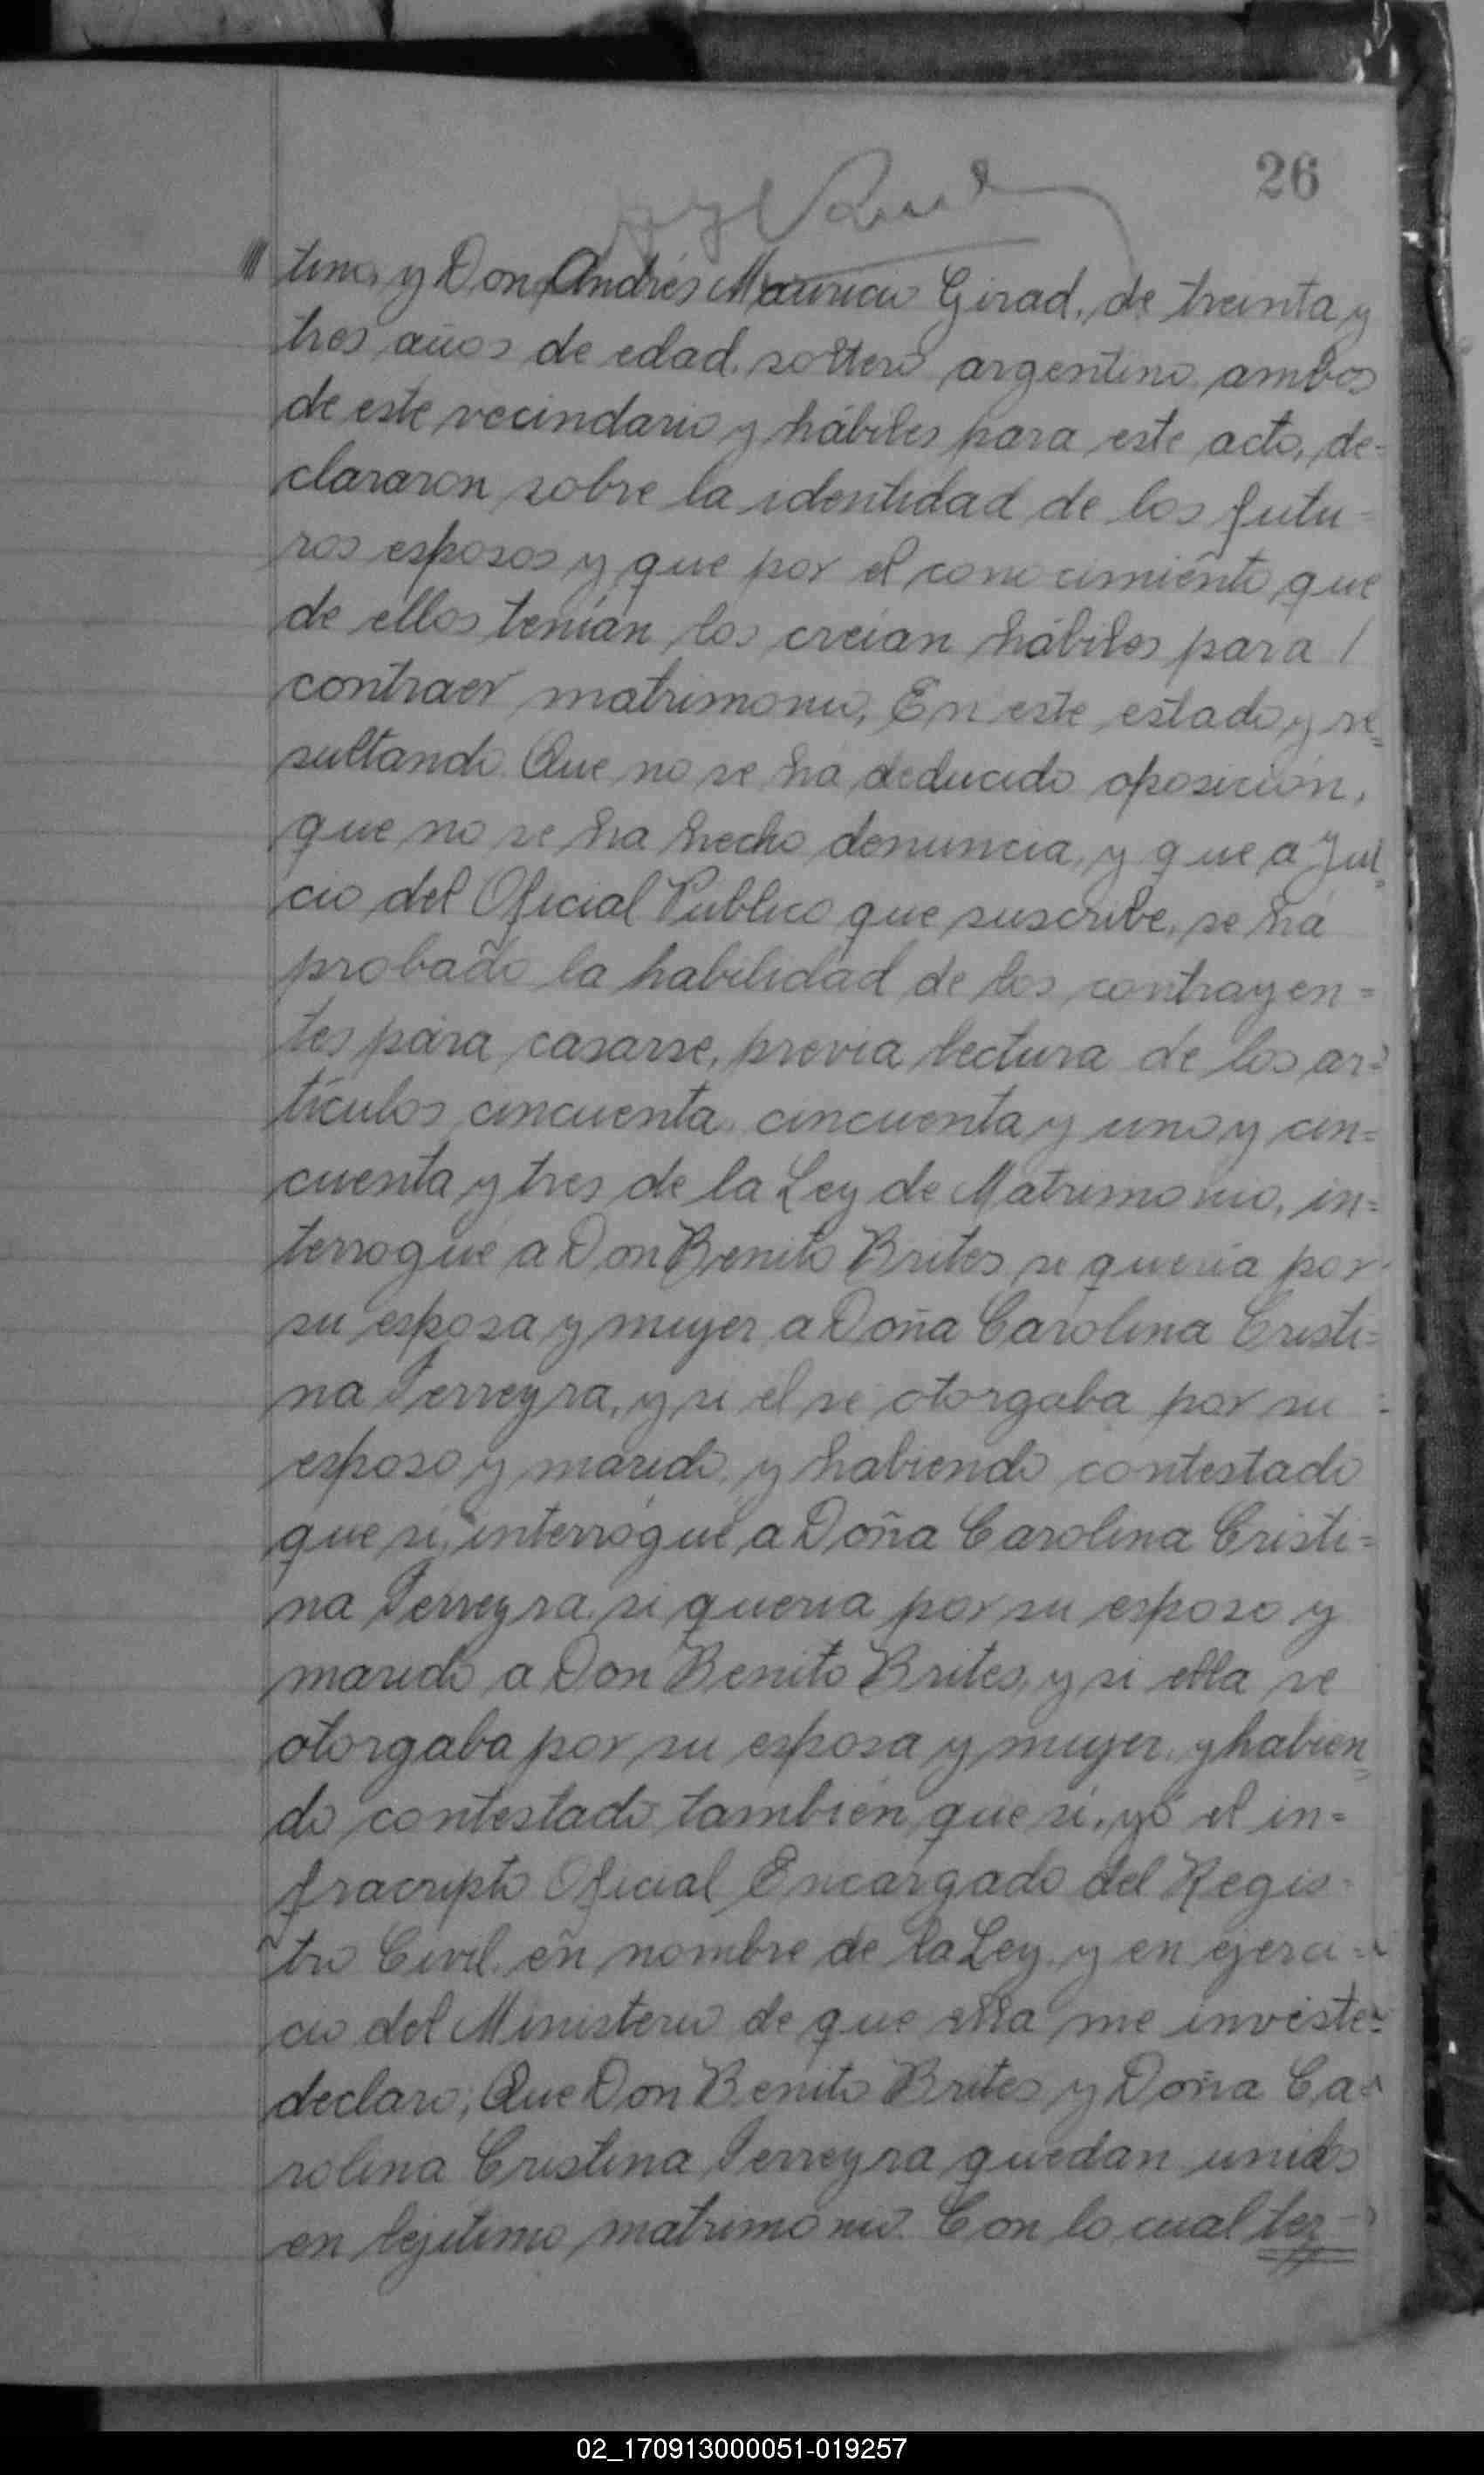 26
tino, y Don Andrés Mauricio Girad, de treinta y
tres años de edad, soltero argentino, ambos
de este vecindario y hábiles para este acto, de=
clararon sobre la identidad de los futu=
ros esposos y que por el conocimiento que
de ellos tenían los creían hábiles para /
contraer matrimonio, En este estado y re=
sultando Que no se ha deducido oposición,
que no se ha hecho denuncia, y que a Jui=
cio del Oficial Público que suscribe, se ha
probado la habilidad de los contrayen=
tes para casarse, previa lectura de los ar=
tículos cincuenta, cincuenta y uno y cin=
cuenta y tres de la Ley de Matrimonio, in=
terrogué a Don Benito Brites si quería por
su esposa y mujer a Doña Carolina Cristi=
na Ferreyra, y si el se otorgaba por su
esposo y marido, y habiendo contestado
que si, interrogué a Doña Carolina Cristi=
na Ferreyra si quería por su esposo y
marido a Don Benito Brites, y si ella se
otorgaba por su esposa y mujer, y habien=
do contestado también que si, yo el in=
fracripto Oficial Encargado del Regis=
tro Civil, en nombre de la Ley, y en ejerci=
cio del Ministerio de que ella me inviste=
declaro; Que Don Benito Brites y Doña Ca=
rolina Cristina Ferreyra quedan unidos
en lejítimo matrimonio. Con lo cual ter=
02_170913000051-019257